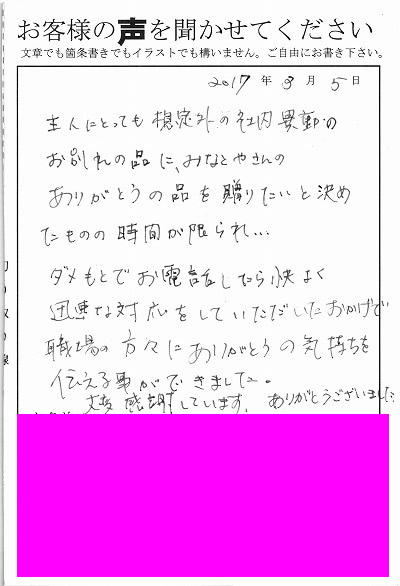 お客様の声を聞かせてください
文章でも箇条書きでもイラストでも構いません。ご自由にお書き下さい。
2017 年 3 月 5 日
主人にとっても想定外の社内異動の
お別れの品に、みなとやさんの
ありがとうの品を贈りたいと決め
たものの時間が限られ…
ダメもとでお電話したら快よく
迅速な対応をしていただいたおかげで
職場の方々にありがとうの気持ちを
伝える事ができました。
大変感謝しています。ありがとうございました